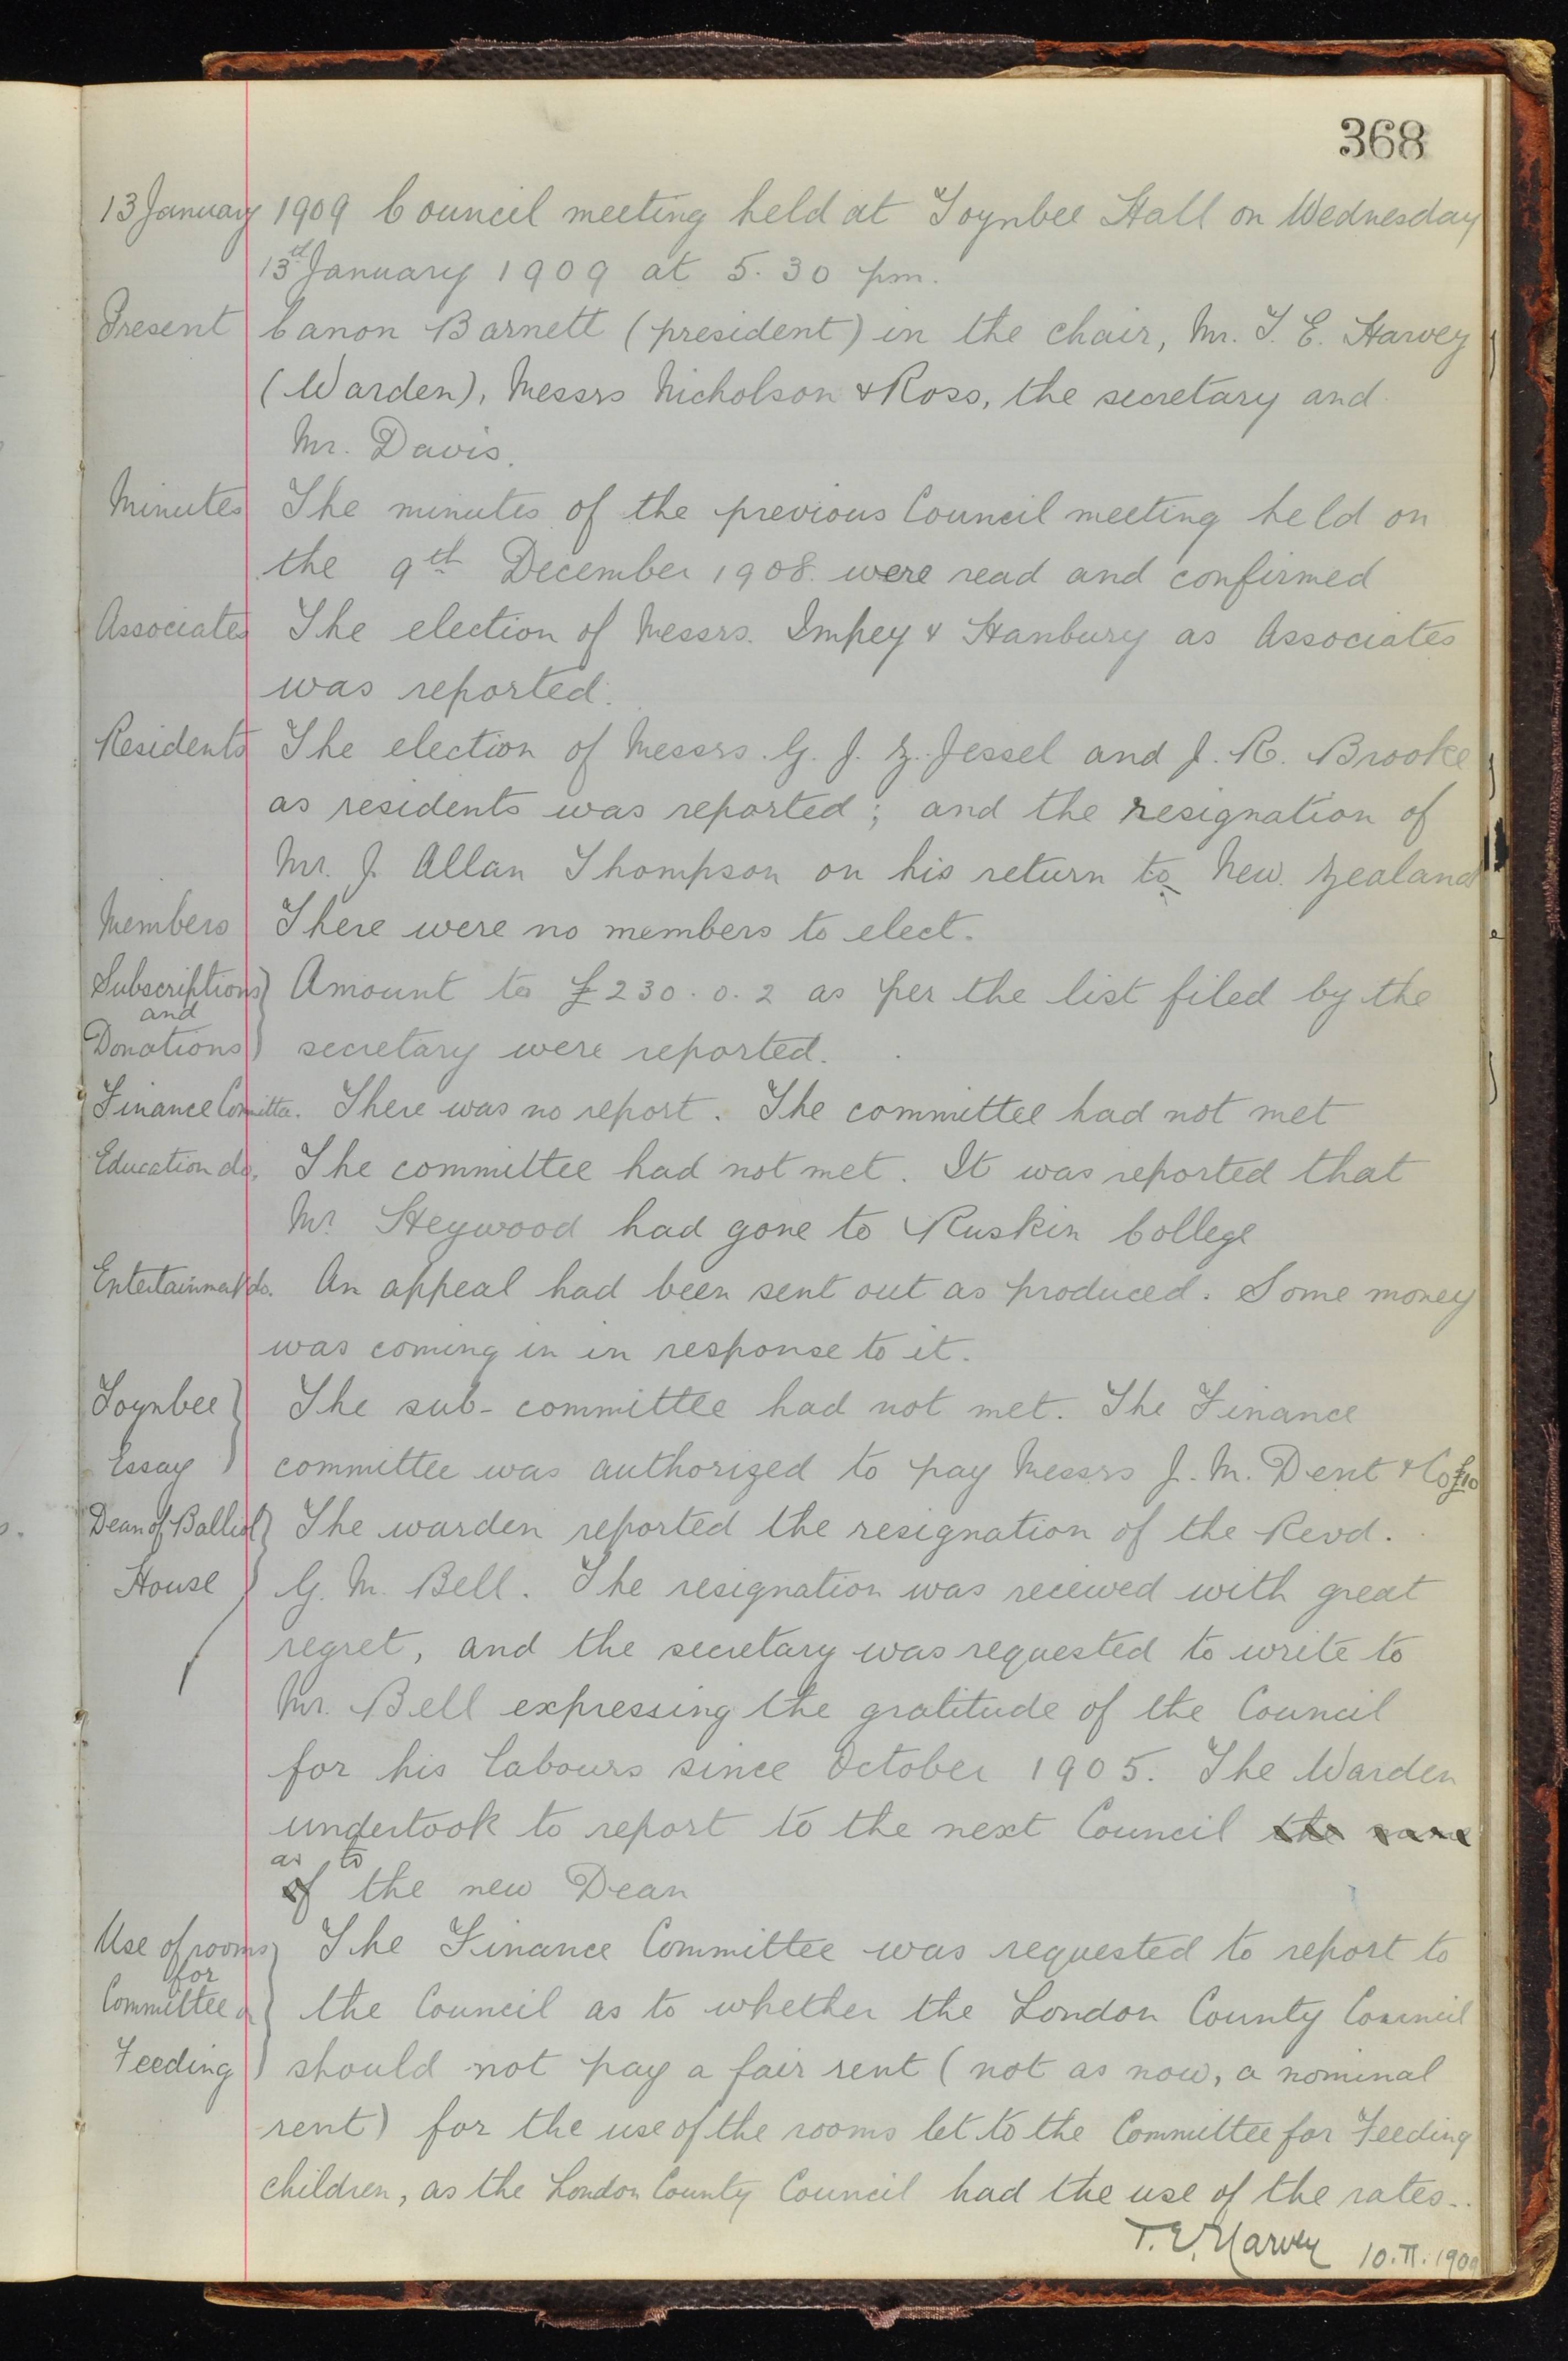 368
13 January 1909 Council meeting held at Toynbee Hall on Wednesday
13th January 1909 at 5.30 pm.
Present Canon Barnett (president) in the chair, Mr. T. E. Harvey
(Warden), Messrs Nicholson & Ross, the secretary and
Mr. Davis.
Minutes The minutes of the previous Council meeting held on
the 9th December 1908. were read and confirmed
Associates The election of Messrs. Impey & Hanbury as Associates
was reported.
Residents The election of Messrs. G. J. Z. Jessel and J. R. Brooke
as residents was reported; and the resignation of
Mr. J. Allan Thompson on his return to New. Zealand
Members There were no members to elect.
Subscriptions Amount to £230.0.2 as per the list filed by the
and
Donations secretary were reported.
Finance Comittee. There was no report. The committee had not met
Education do. The committee had not met. It was reported that
Mr. Heywood had gone to Ruskin College
Entertainment do. An appeal had been sent out as produced. Some money
was coming in in response to it.
Toynbee The sub-committee had not met. The Finance
Essay committee was authorized to pay Messrs J. M. Dent & Co £10
Dean of Balliol The warden reported the resignation of the Revd.
House G. M. Bell. The resignation was received with great
regret, and the secretary was requested to write to
Mr. Bell expressing the gratitude of the Council
for his labours since October 1905. The Warden
undertook to report to the next Council the name
as to
of the new Dean
Use of rooms The Finance Committee was requested to report to
for
Committee the Council as to whether the London County Council
Feeding should not pay a fair rent (not as now, a nominal
rent) for the use of the rooms let to the Committee for Feeding
children, as the London County Council had the use of the rates.
T. E. Harvey 10.II.1909